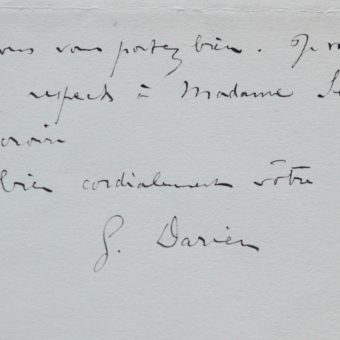 vous vous portez bien. Je
respects à Madame
croire
bien cordialement vôtre
G. Darien